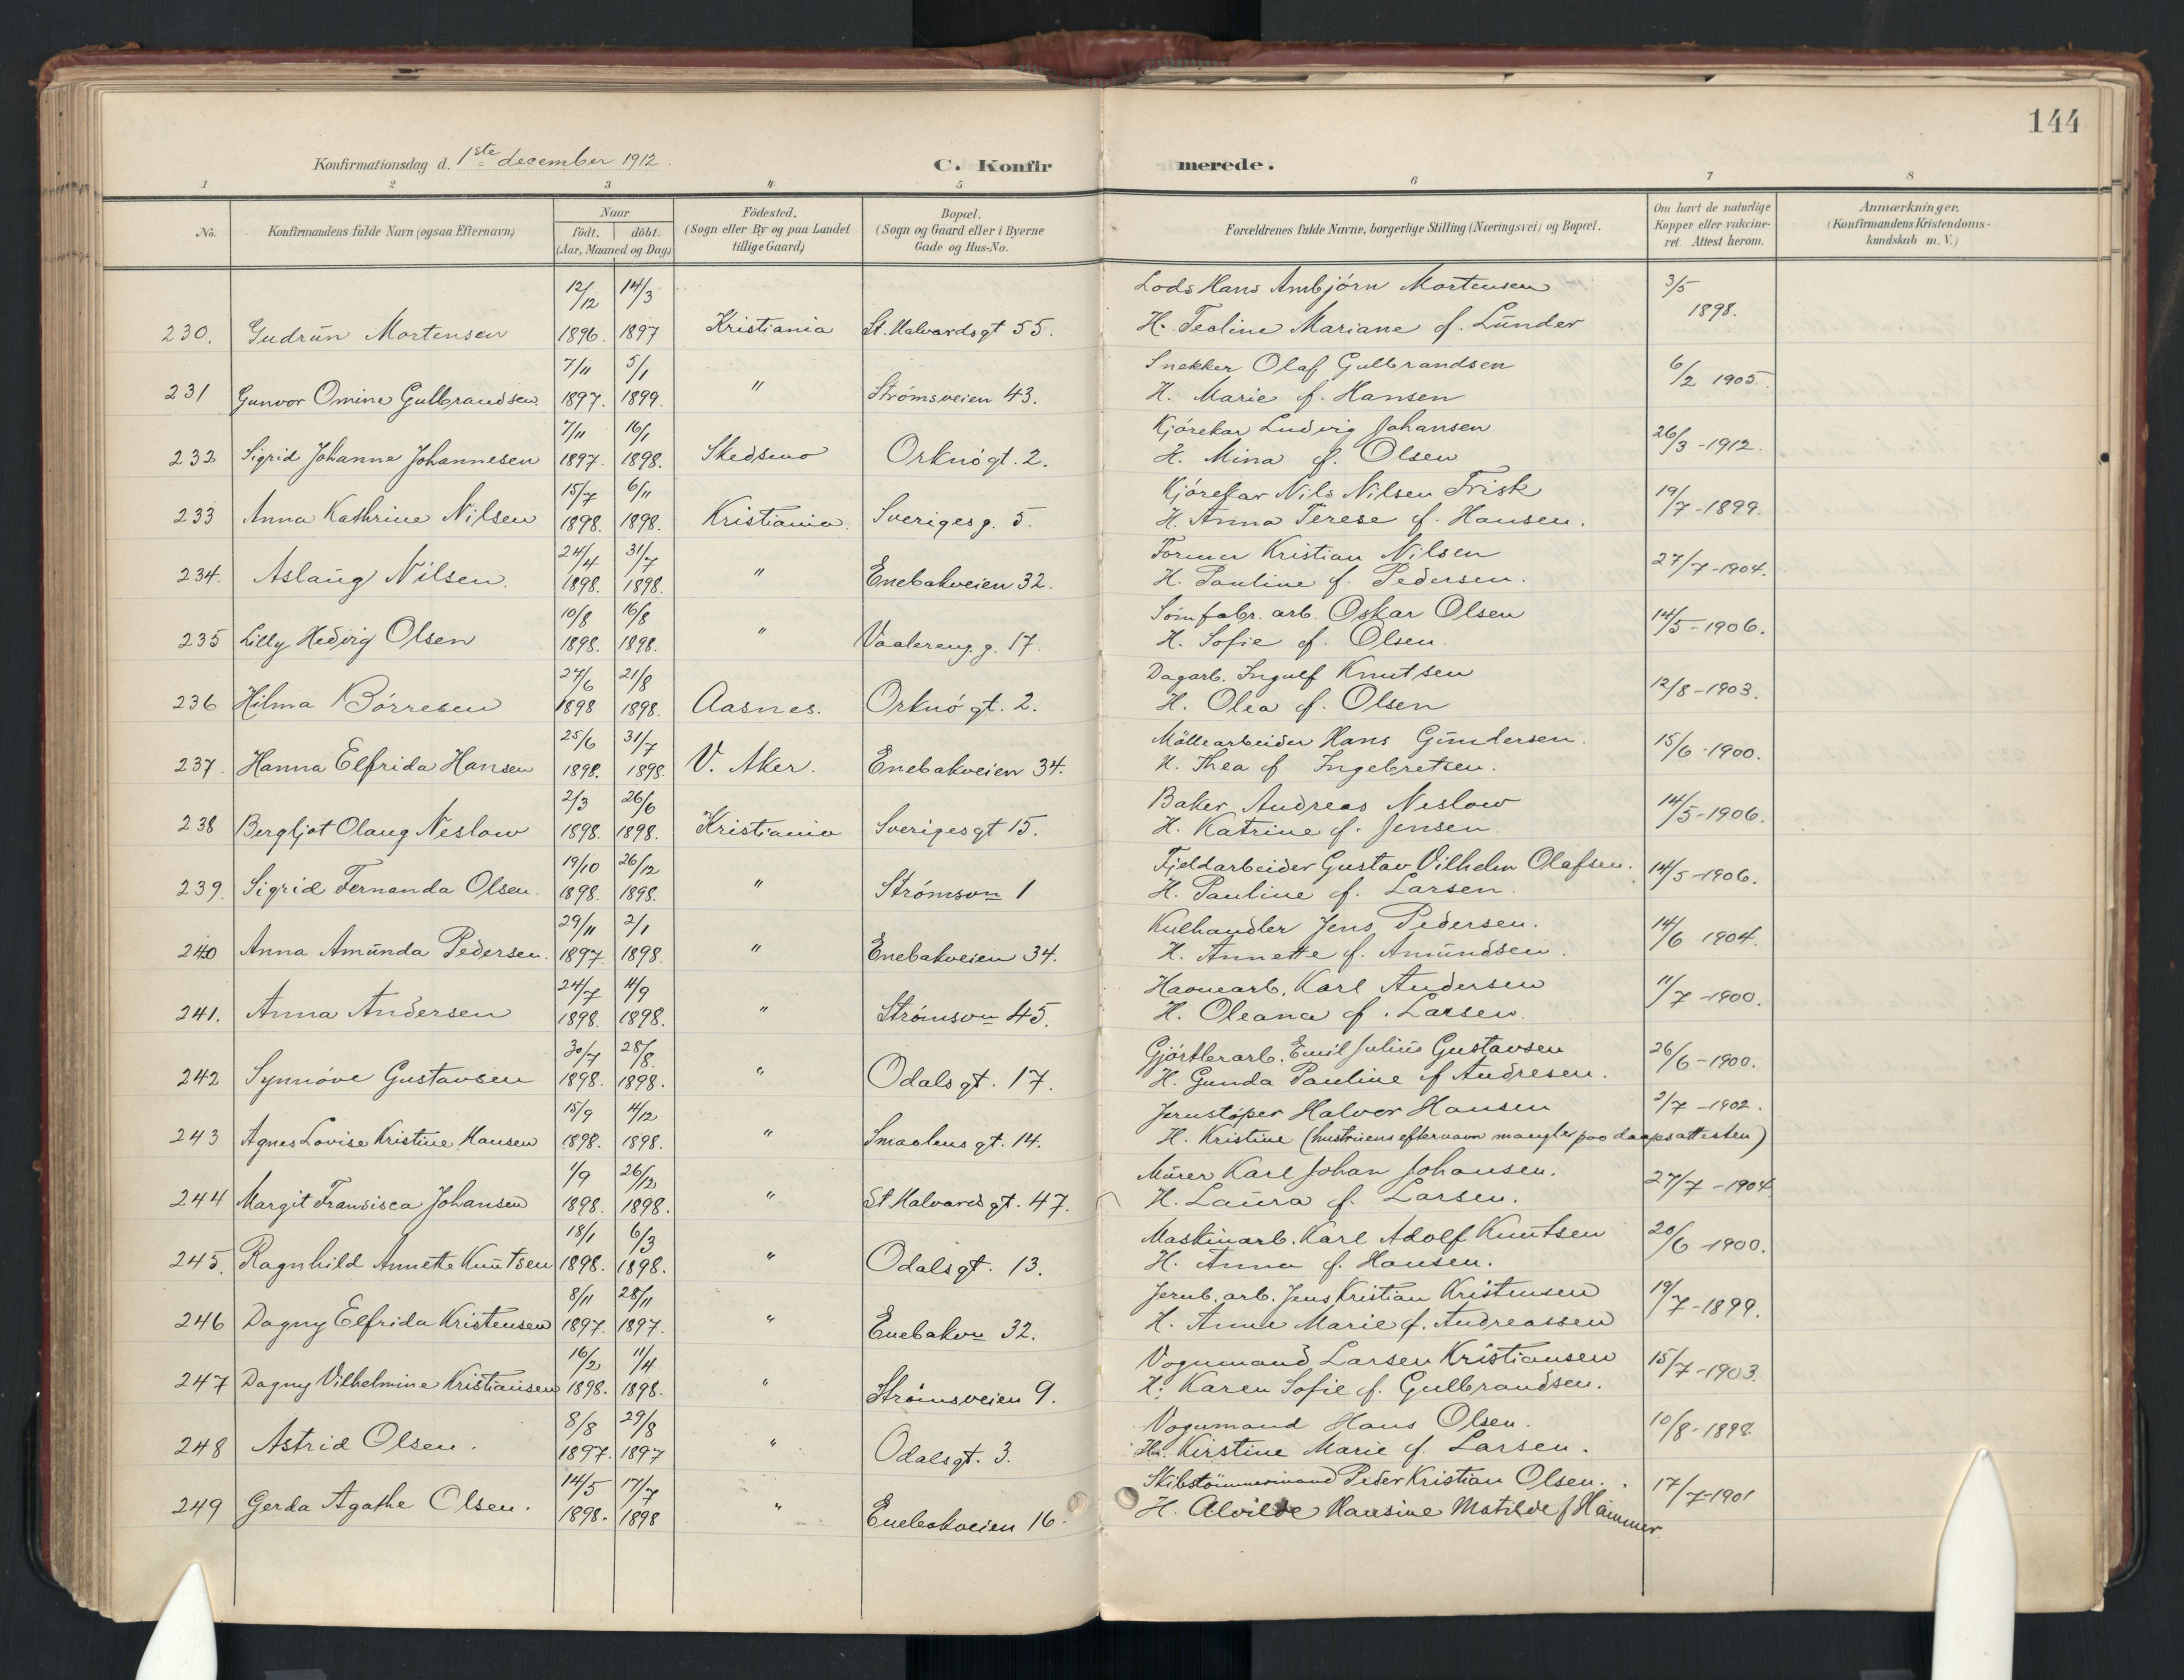 144
Konfirmationsdag d. 1ste december 1912.
C. Konfirmerede.
1 2 3 4 5 6 7 8
No.
Konfirmandens fulde Navn (ogsaa Efternavn)
Naar
født. døbt.
(Aar, Maaned og Dag)
Födested.
(Sogn eller By og paa Landet
tillige Gaard)
Bopæl.
(Sogn og Gaard eller i Byerne
Gade og Hus-No.
Forældrenes fulde Navne, borgerlige Stilling (Næringsvei) og Bopæl.
Om havt de naturlige
Kopper eller vakcine-
ret. Attest herom.
Anmærkninger.
(Konfirmandens Kristendoms-
kundskab m. V.)
12/12 14/3 Lods Hans Ambjörn Mortensen 3/5
230. Gudrun Mortensen 1896. 1897 Kristiania St. Halvardsgt 55. H. Teoline Mariane f. Lunder 1898.
7/11 5/1 Snekker Olaf Gulbrandsen 6/2 1905
231 Gunvor Omine Gulbrandsen 1897. 1899. " Strømsveien 43. H. Marie f. Hansen
7/11 16/1 Kjörekar Ludvig Johansen 26/3-1912.
232 Sigrid Johanne Johannesen 1897. 1898. Skedsmo Orknögt. 2. H. Mina f. Olsen
15/7 6/11 Kjörekar Nils Nilsen Frisk 19/7-1899
233 Anna Kathrine Nilsen 1898. 1898. Kristiania. Sverigesg. 5. H. Anna Terese f. Hansen.
24/4 31/7 Former Kristian Nilsen 27/7-1904.
234. Aslaug Nilsen. 1898. 1898. " Enebakveien 32. H. Pauline f. Pedersen.
10/8 16/8 Sömfabr. arb. Oskar Olsen 14/5-1906.
235 Lilly Hedvig Olsen 1898. 1898. " Vaalereng. g. 17. H. Sofie f. Olsen.
27/6 21/8 Dagarb. Ingulf Knutsen 12/8-1903.
236 Hilma Börresen 1898 1898. Aasnes. Orknö gt. 2. H. Olea f. Olsen
25/6 31/7 Möllearbeider Hans Gundersen. 15/6-1900.
237. Hanna Elfrida Hansen 1898. 1898. V. Aker. Enebakveien 34. H. Thea f Ingebretsen.
2/3 26/6 Baker Andreas Neslow 14/5-1906.
238 Bergljot Olaug Neslow 1898. 1898. Kristiania Sverigesgt 15. H. Katrine f. Jensen.
19/10 26/12 Fjeldarbeider Gustav Vilhelm Olafsen. 14/5-1906.
239. Sigrid Fernanda Olsen. 1898. 1898. " Strömsvn 1 H. Pauline f. Larsen.
29/11 2/1 Kulhandler Jens Pedersen. 14/6 1904.
240 Anna Amunda Pedersen. 1897. 1898. " Enebakveien 34. H. Annette f. Amundsen.
24/7 4/9 Havnearb. Karl Andersen 11/7-1900.
241. Anna Andersen 1898. 1898. " Strömsvn 45. H. Oleana f. Larsen.
30/7 28/8. Gjörtlerarb. Emil Julius Gustavsen 26/6-1900.
242 Synnöve Gustavsen 1898. 1898. " Odalsgt. 17. H. Gunda Pauline f Andresen.
15/9 4/12 Jernstöper Halvor Hansen 2/7-1902.
243 Agnes Lovise Kristine Hansen 1898. 1898. " Smaalens gt. 14. H. Kristine (hustruens efternavn mangler paa daapsattesten)
1/9 26/12 Murer Karl Johan Johansen. 27/7-1904
244 Margit Fransisca Johansen 1898. 1898. " St Halvards gt. 47. H. Laura f. Larsen.
18/1 6/3 Maskinarb. Karl Adolf Knutsen 20/6-1900.
245. Ragnhild Annette Knutsen 1898. 1898. " Odalsgt. 13. H. Anna f. Hansen.
8/11 28/11 Jernb. arb. Jens Kristian Kristensen 19/7-1899.
246 Dagny Elfrida Kristensen 1897. 1897. " Enebakvn 32. H. Anne Marie f. Andreassen
16/2 11/4 Vognmand Larsen Kristiansen 15/7-1903.
247 Dagny Vilhelmine Kristiansen 1898. 1898. " Strömsveien 9. H. Karen Sofie f. Gulbrandsen.
8/8 29/8 Vognmand Hans Olsen. 10/8-1898
248 Astrid Olsen. 1897. 1897 " Odalsgt. 3. H. Kirstine Marie f. Larsen.
14/5 17/7 Skibstömmermand Peder Kristian Olsen. 17/7-1901
249 Gerda Agathe Olsen. 1898. 1898 " Enebakveien 16. H. Alvilde Hansine Matilde f Hammer.